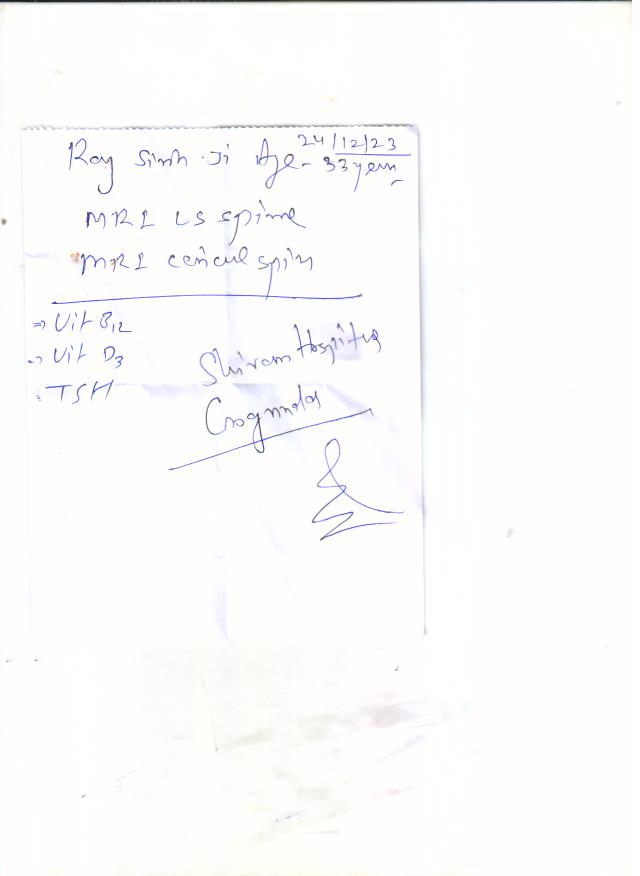 24/12/23
Ray Sinh Ji Age - 33 year
MRI LS spine
MRI cervical spin
⇒ Vit B12
⇒ Vit D3
: TSH
Shivam Hospital